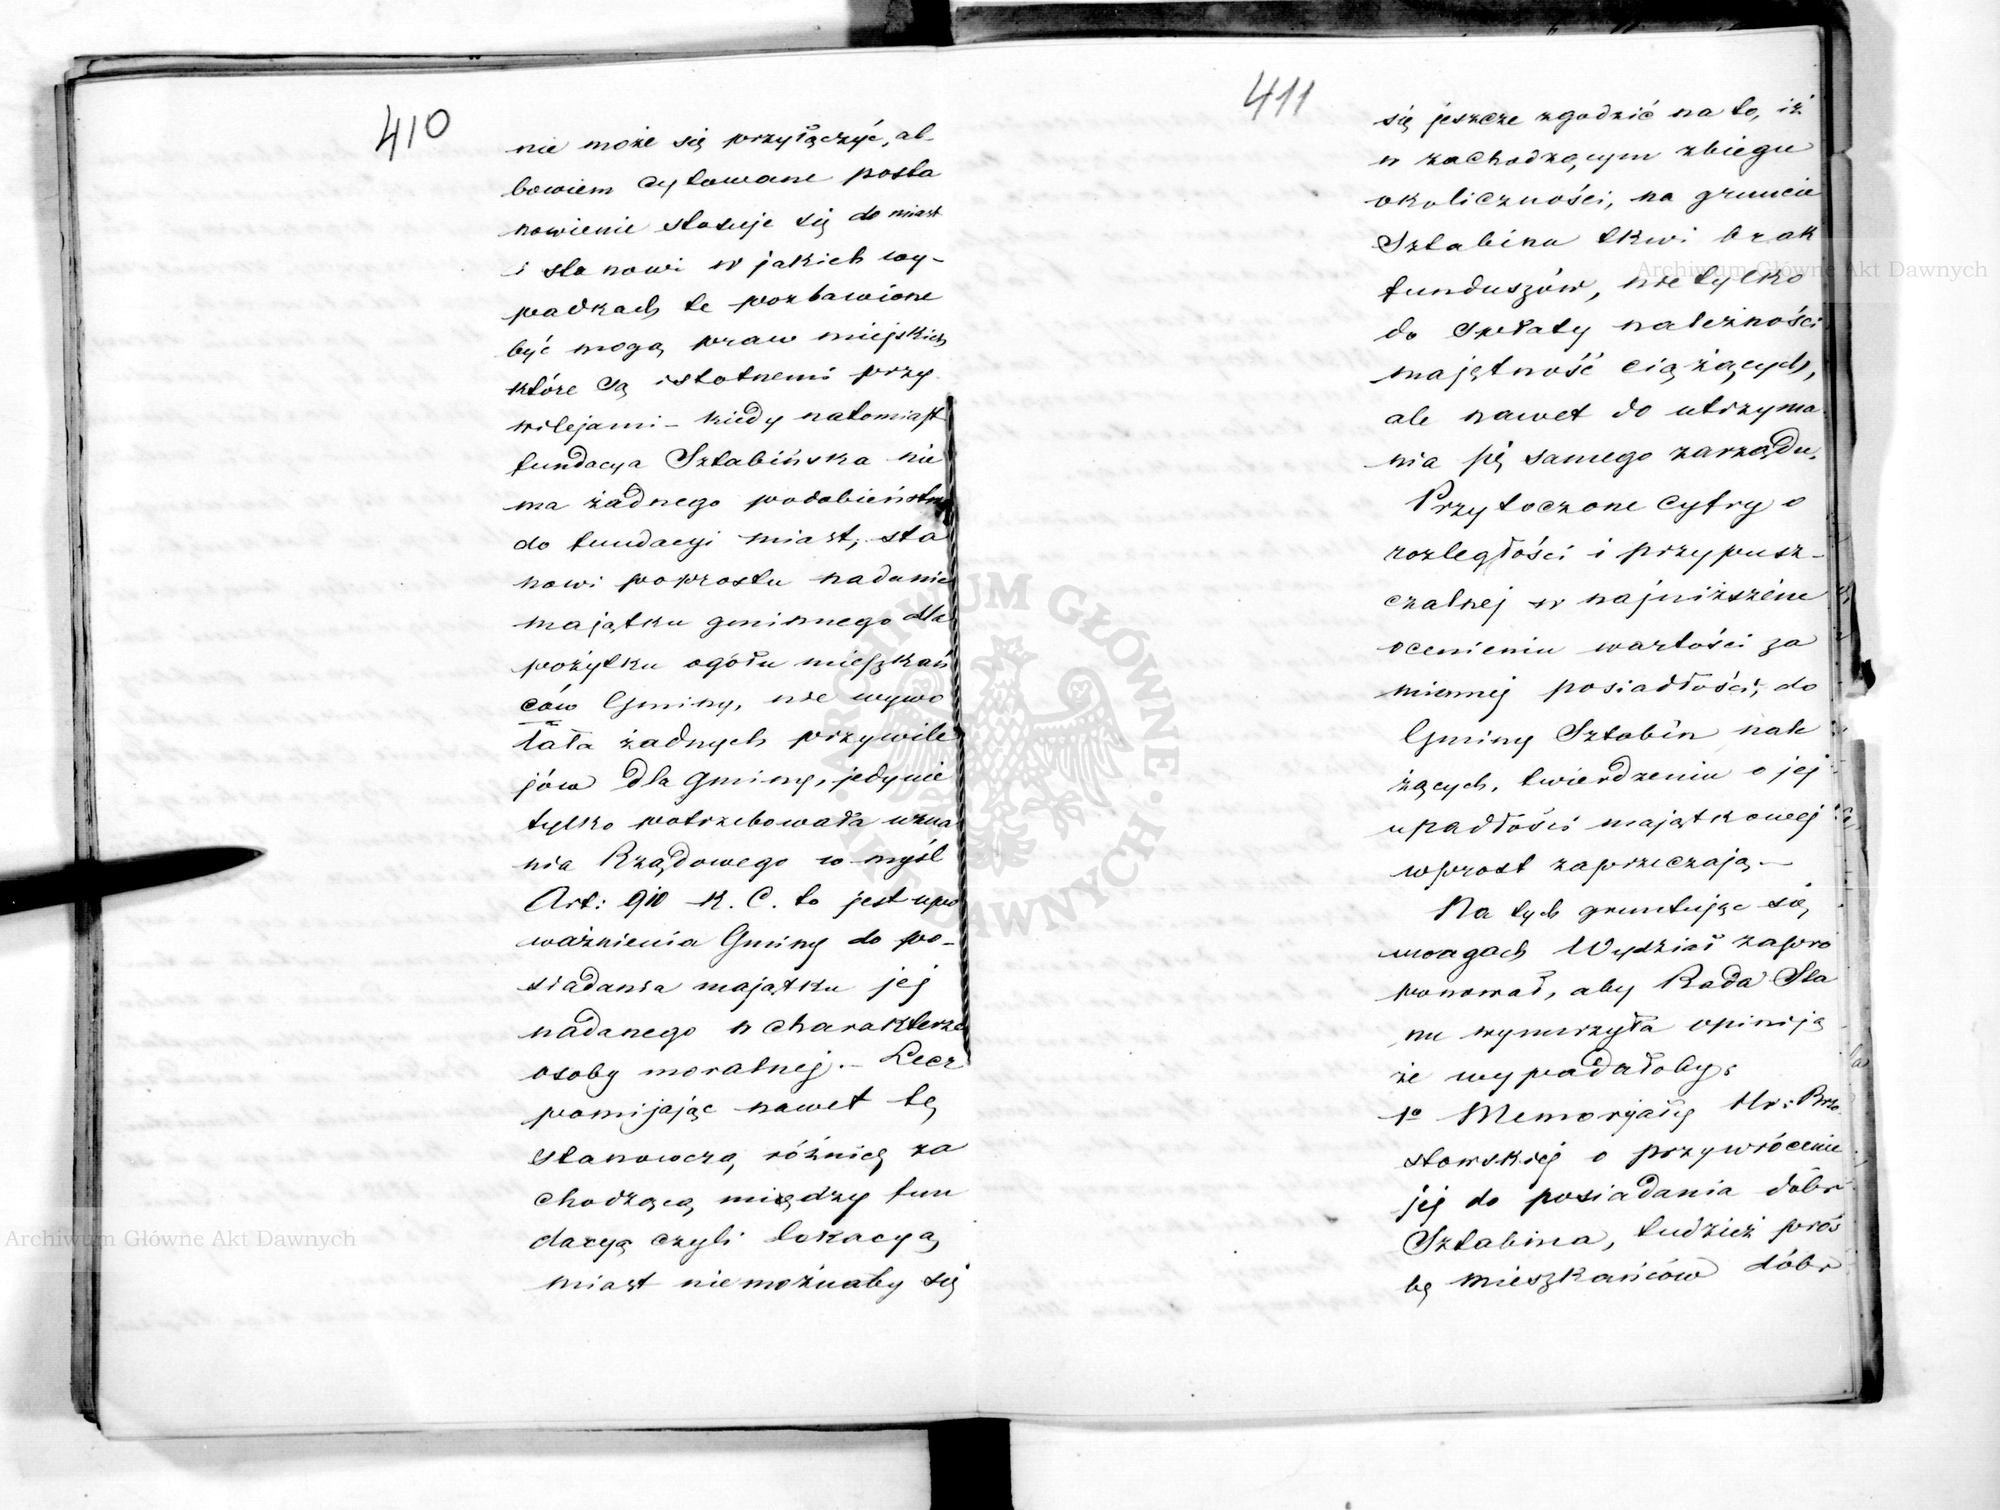 410
nie może się przyłączyć, al-
bowiem cytowane posta
nowienie stosuje się do miast
i stanowi w jakich wy-
padkach te pozbawione
być mogą praw miejskich
które są istotnemi przy
wilejami – kiedy natomiast
fundacya Sztabińska nie
ma żadnego podobieństwa
do fundacyi miast, sta
nowi poprostu nadanie
majątku gminnego dla
pożytku ogółu mieszkań
ców Gminy, nie wywo
łała żadnych przywile
jów dla Gminy, jedynie
tylko potrzebowała uzna
nia Rządowego w myśl
Art: 910 K. C. to jest upo
ważnienia Gminy do po-
siadania majątku jej
nadanego w charakterze
osoby moralnej. – Lecz
pomijając nawet tę
stanowczą różnicę za
chodzącą między fun
dacyą czyli lokacyą
miast nie możnaby się
411
się jeszcze zgodzić na to, iż
w zachodzącym zbiegu
okoliczności, na gruncie
Sztabina tkwi brak
funduszów, nie tylko
do spłaty należności
majętność ciążących,
ale nawet do utrzyma
nia się samego zarządu.
Przytoczone cyfry o
rozległości i przypusz-
czalnej w najniższém
ocenieniu wartości za
miennej posiadłości, do
Gminy Sztabin nale
żących, twierdzeniu o jej
upadłości majątkowej
wprost zaprzeczają. –
Na tych gruntując się
uwagach Wydział zapro
ponował, aby Rada Sta
nu wynurzyła opiniją
że wypadałoby:
1o Memoryały Hr: Brzo
stowskiej o przywrócenie
jej do posiadania dóbr
Sztabina, tudzież proś
bę mieszkańców dóbr
Archiwum Główne Akt Dawnych
Archiwum Główne Akt Dawnych
ARCHIWUM GŁÓWNE AKT DAWNYCH